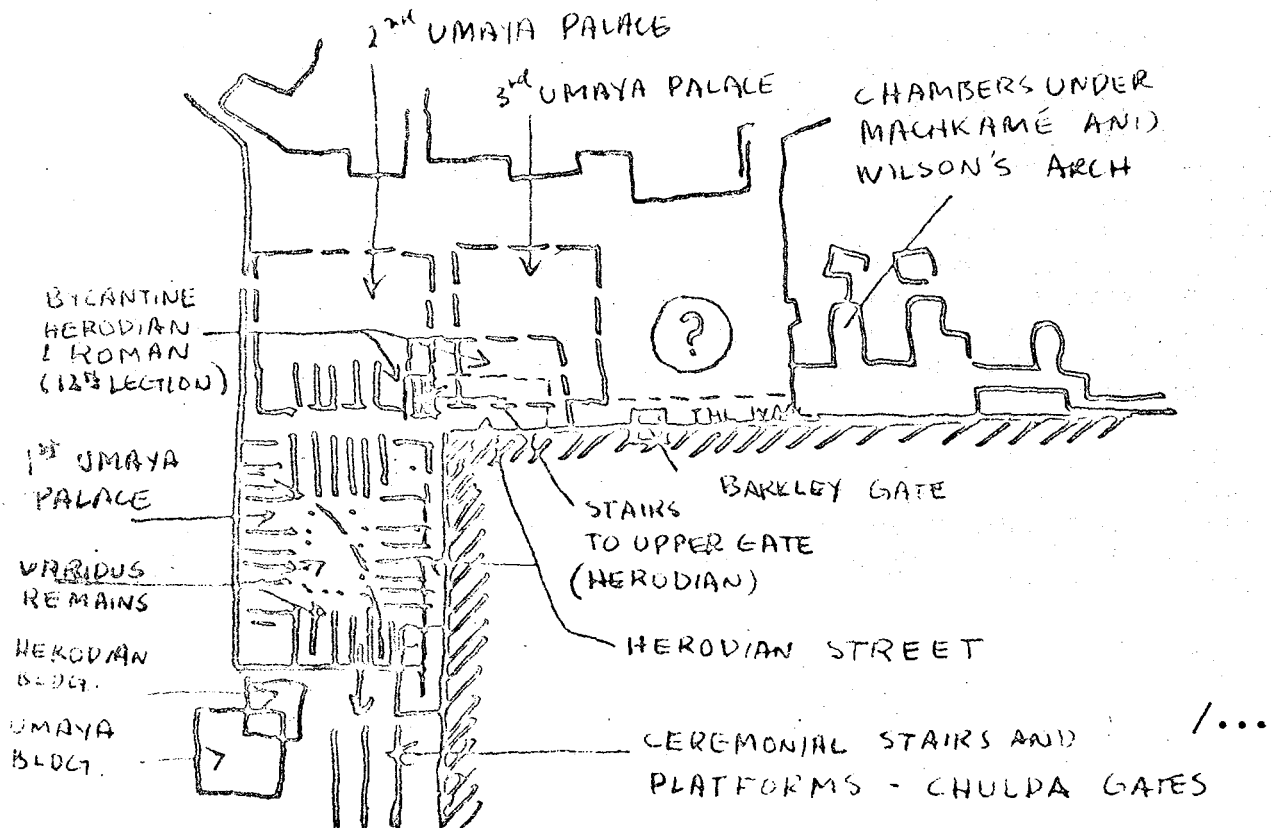 2nd UMAYA PALACE
3rd UMAYA PALACE
CHAMBERS UNDER
MACHKAMÉ AND
WILSON'S ARCH
BYCANTINE
HERODIAN
& ROMAN
?
1st UMAYA
PALACE
BARKLEY GATE
STAIRS
TO UPPER GATE
(HERODIAN)
VARIOUS
REMAINS
HERODIAN STREET
HERODIAN
BLDG.
UMAYA
BLDG.
/...
CEREMONIAL STAIRS AND
PLATFORMS - CHULDA GATES